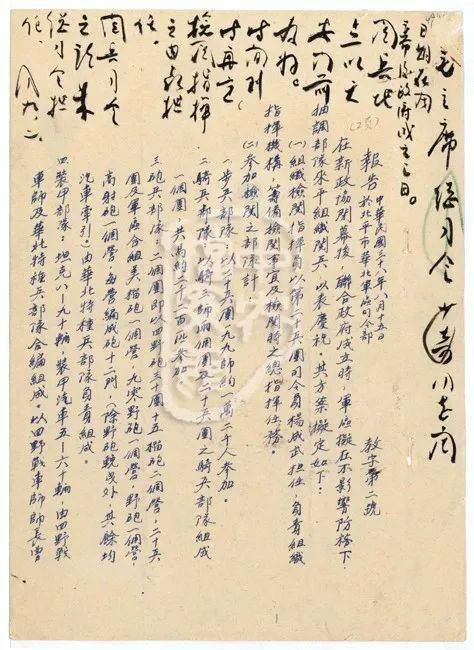 毛主席 總司令 少奇同志閱
日期在閱
政府成立之日。
閱兵地
點以天
安門前
為好。
時間到
時再定
檢閱指揮
之由聶担
任。
閱兵司令
之請朱
總司令担
任、
周 九、二、
報告
中華民國三八年八月十五日
於北平市華北軍區司令部
教字第二號
在新政協開幕後,聯合政府成立時,軍區擬在不影響防務下,
抽調部隊來平組織閱兵,以表慶祝。其方案擬定如下:
(一)組織檢閱指揮,以第二十兵團司令員楊成武担任,負責組織
指揮機構,籌備檢閱事宜及檢閱時之總指揮任務。
(二)參加檢閱之部隊計:
一步兵部隊:以二十兵團一九九師約一萬二千人參加。
二騎兵部隊:以騎三師兩個團及二十兵團之騎兵部隊組成
一個團,共馬約二千一百匹參加。
三砲兵部隊:二個團即以四野砲三十團十五榴砲二個營,二十兵
團及軍區各組美榴砲一個營,九零野砲一個營,野砲一個營,
高射砲一個營,每營編成砲十二門,(除野砲挽曳外,其餘均
汽車牽引)由華北特種兵部隊負責組成。
四裝甲部隊:坦克八—九十輛,裝甲汽車五—六十輛,由四野戰
車師及華北特種兵部隊合編組成。以四野戰車師師長曾